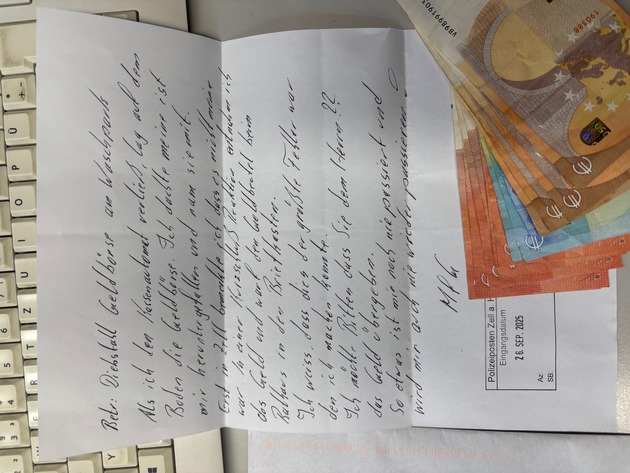 Betr: Diebstahl Geldbörse am Waschpark
Als ich den Kassenautomat verließ, lag auf dem
Boden die Geldbörse. Ich dachte meine ist
mir heruntergefallen und nam sie mit.
Erst in Zell bemerkte ich dass es nicht meine
war. In einer Kurzschluß Reaktion entnahm ich
das Geld und warf den Geldbeutel beim
Rathaus in den Briefkasten.
Ich weiss, dass dies der größte Fehler war
den ich machen konnte.
Ich möchte Bitten dass Sie dem Herrn ??
das Geld übergeben.
So etwas ist mir noch nie passiert und
wird mir auch nie wieder passieren !
MfG
Polizeiposten Zell a. H
Eingangsdatum
26. SEP. 2025
Az:
SB:
190388